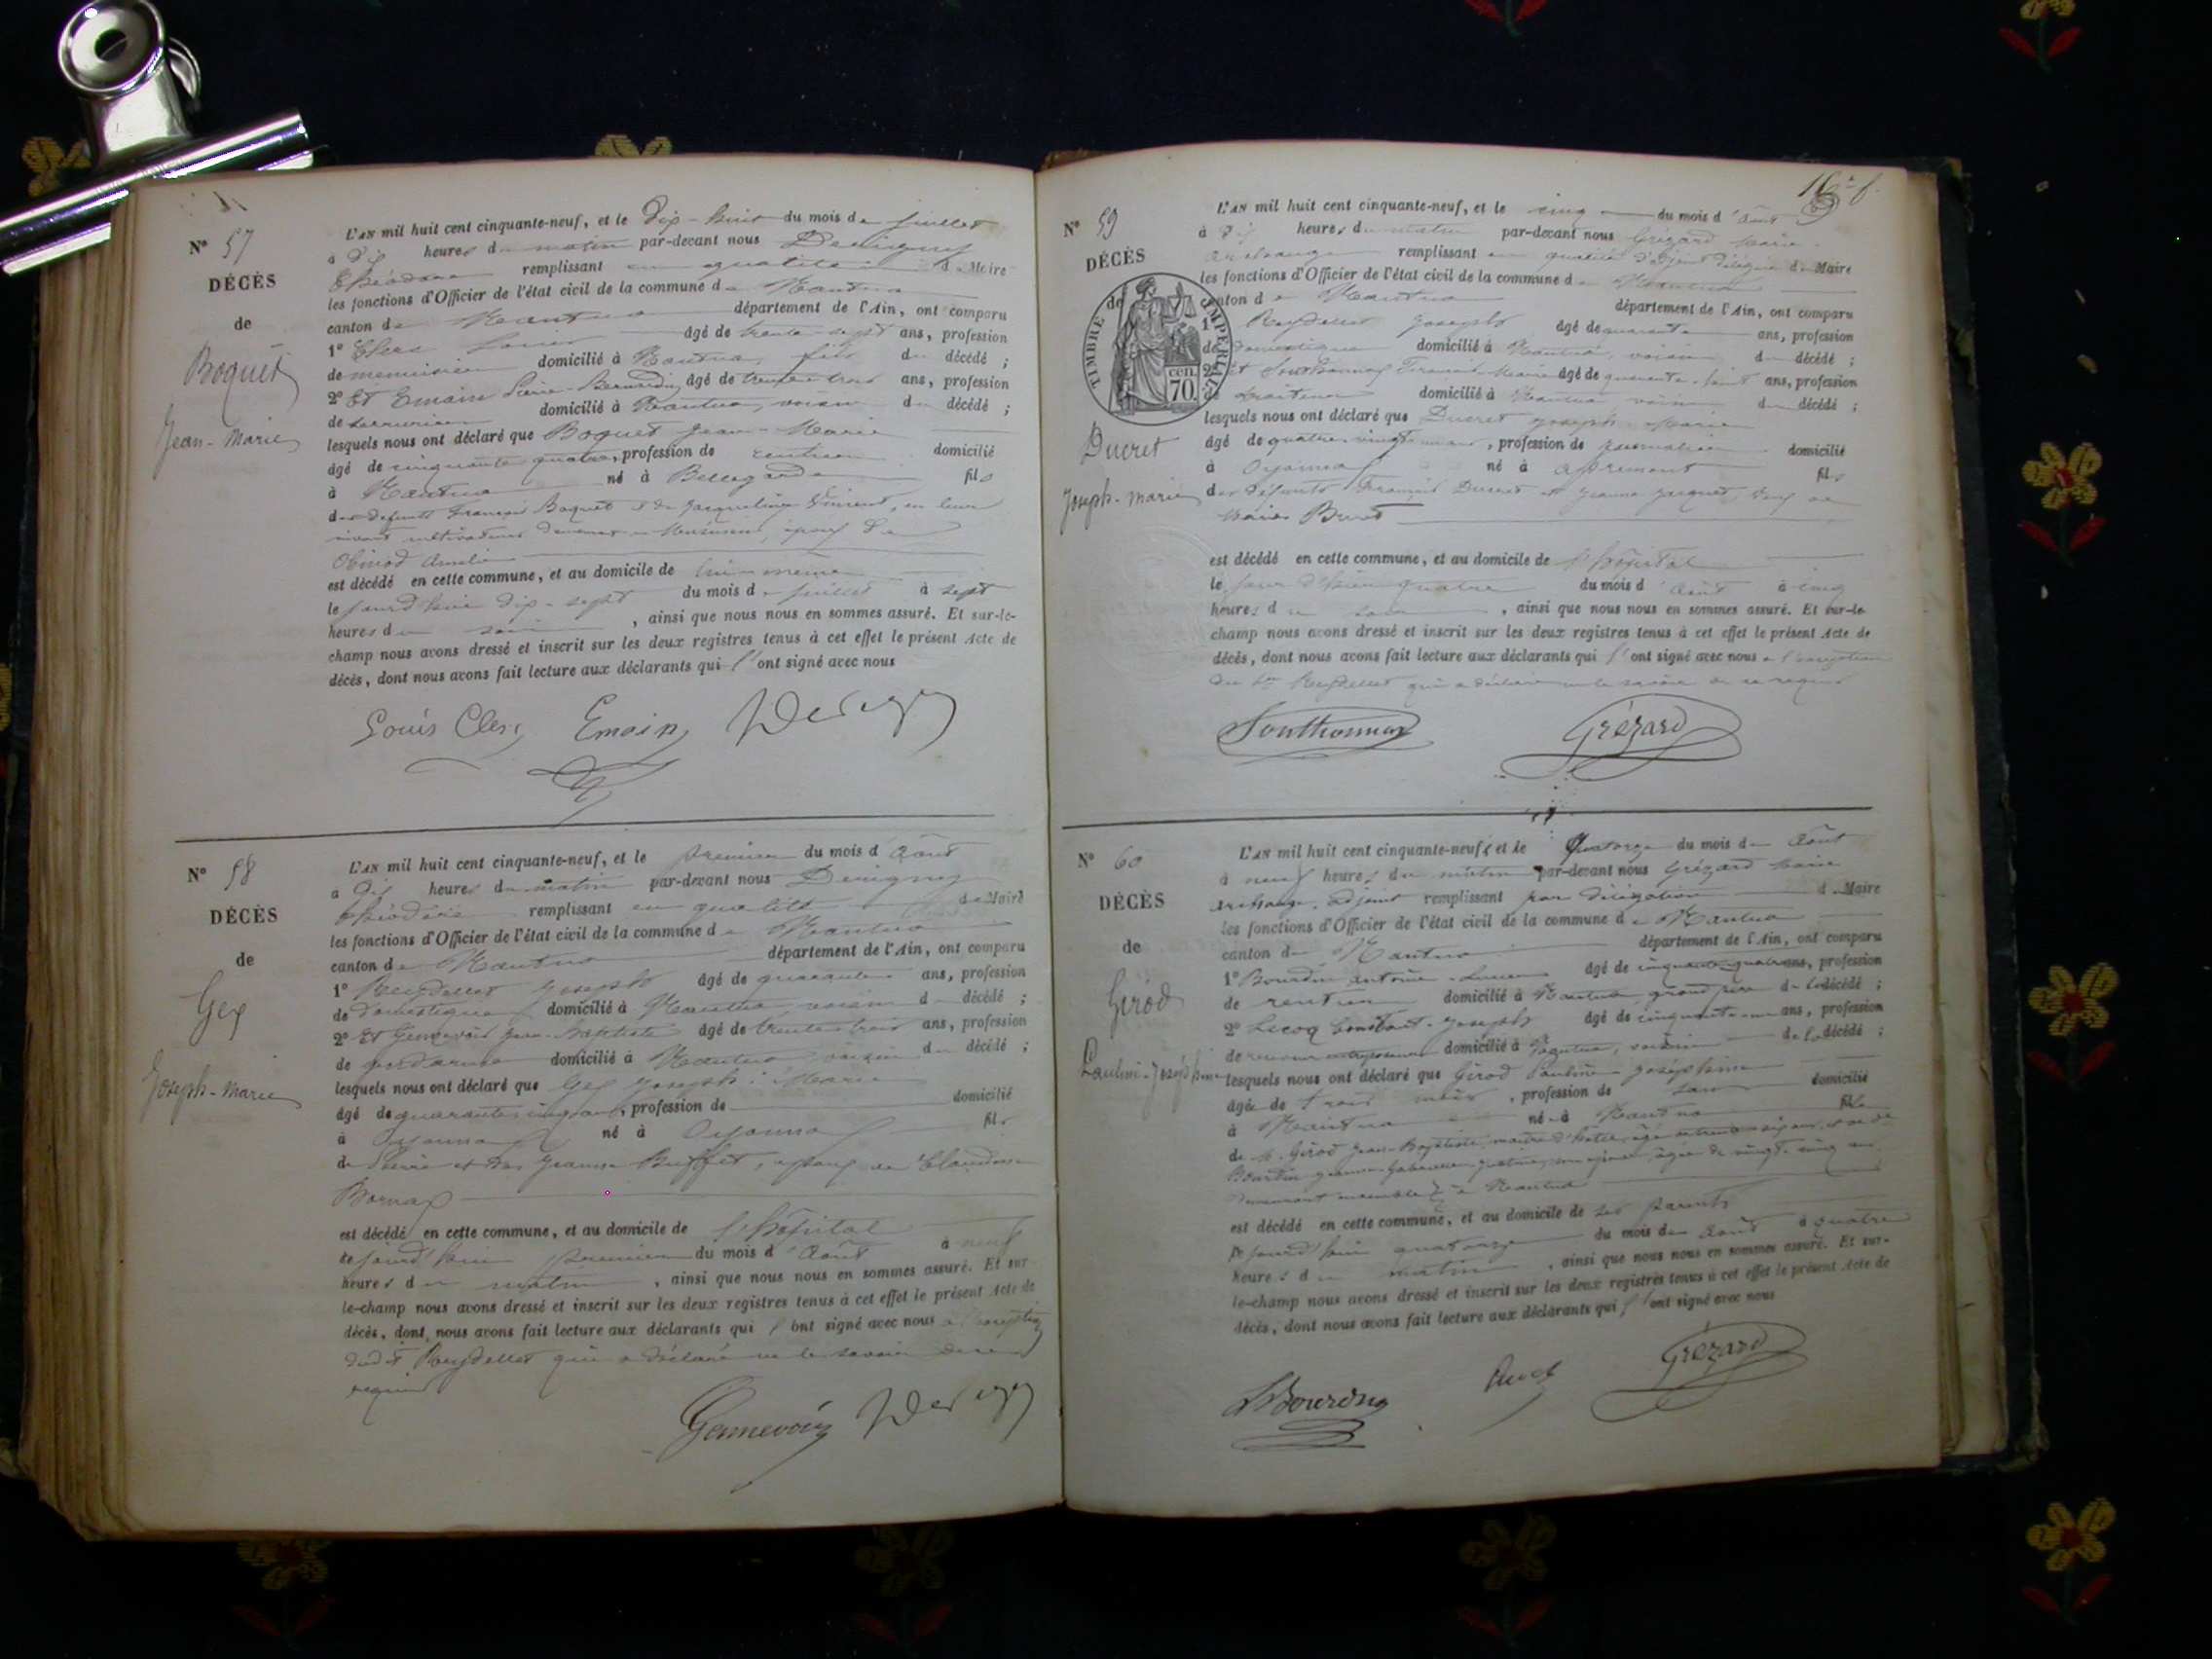 N° 57
DÉCÈS
de
Boquet
Jean-Marie
L'AN mil huit cent cinquante-neuf, et le dix-huit du mois de juillet
à dix heures du matin par-devant nous Derugny
Théodore remplissant en qualité de Maire
les fonctions d'Officier de l'état civil de la commune de Nantua
canton de Nantua département de l'Ain, ont comparu
1° Clerc Louis âgé de trente-sept ans, profession
de menuisier domicilié à Nantua, fils du décédé ;
2° Et Emain Pierre-Bernardin âgé de trente-trois ans, profession
de serrurier domicilié à Nantua, voisin du décédé ;
lesquels nous ont déclaré que Boquet Jean-Marie
âgé de cinquante quatre, profession de rentier domicilié
à Nantua né à Bellegarde fils
des défunts François Boquet et de Jacqueline Vincent, en leur
vivant cultivateurs demeurant à Musinens, époux de
Obinod Amélie
est décédé en cette commune, et au domicile de lui-même
le jourd'hui dix-sept du mois de juillet à sept
heures du soir, ainsi que nous nous en sommes assuré. Et sur-le-
champ nous avons dressé et inscrit sur les deux registres tenus à cet effet le présent Acte de
décès, dont nous avons fait lecture aux déclarants qui l'ont signé avec nous
Louis Clerc Emain
N° 58
DÉCÈS
de
Gex
Joseph-Marie
L'AN mil huit cent cinquante-neuf, et le premier du mois d'Août
à dix heures du matin par-devant nous Derugny
Théodore remplissant en qualité de Maire
les fonctions d'Officier de l'état civil de la commune de Nantua
canton de Nantua département de l'Ain, ont comparu
1° Reydellet Joseph âgé de quarante ans, profession
de domestique domicilié à Nantua, voisin du décédé ;
2° Et Gennevois Jean-Baptiste âgé de trente-trois ans, profession
de gendarme domicilié à Nantua voisin du décédé ;
lesquels nous ont déclaré que Gex Joseph-Marie
âgé de quarante cinq ans, profession de domicilié
à Oyonnax né à Oyonnax fils
de Pierre et de Jeanne Buffet, époux de Claudine
Bornax
est décédé en cette commune, et au domicile de l'hôpital
le jourd'hui premier du mois d'Août à neuf
heures du matin, ainsi que nous nous en sommes assuré. Et sur
le-champ nous avons dressé et inscrit sur les deux registres tenus à cet effet le présent Acte de
décès, dont nous avons fait lecture aux déclarants qui l'ont signé avec nous à l'exception
dudit Reydellet qui a déclaré ne le savoir de ce
requis
Gennevois
16e f.
N° 59
DÉCÈS
de
TIMBRE IMPÉRIAL
70. cen
Ducret
Joseph-Marie
L'AN mil huit cent cinquante-neuf, et le cinq du mois d'Août
à dix heures du matin par-devant nous Grézard Marie
Archange remplissant en qualité d'adjoint délégué du Maire
les fonctions d'Officier de l'état civil de la commune de Nantua
canton de Nantua département de l'Ain, ont comparu
1° Reydellet Joseph âgé de quarante ans, profession
de domestique domicilié à Nantua, voisin du décédé ;
2° Et Southonnax François-Marie âgé de quarante-huit ans, profession
de traiteur domicilié à Nantua voisin du décédé ;
lesquels nous ont déclaré que Ducret Joseph-Marie
âgé de quatre-vingt ans, profession de journalier domicilié
à Oyonnax né à Apremont fils
des défunts François Ducret et Jeanne Jacquet, veuf de
Marie Buret
est décédé en cette commune, et au domicile de l'hôpital
le jour d'hier quatre du mois d'Août à cinq
heures du soir, ainsi que nous nous en sommes assuré. Et sur-le-
champ nous avons dressé et inscrit sur les deux registres tenus à cet effet le présent Acte de
décès, dont nous avons fait lecture aux déclarants qui l'ont signé avec nous à l'exception
du Sr Reydellet qui a déclaré ne le savoir de ce requis
Southonnax Grézard
N° 60
DÉCÈS
de
Girod
Pauline-Joséphine
L'AN mil huit cent cinquante-neuf, et le Quatorze du mois de Août
à neuf heures du matin par-devant nous Grézard Marie
Archange, adjoint remplissant par délégation du Maire
les fonctions d'Officier de l'état civil de la commune de Nantua
canton de Nantua département de l'Ain, ont comparu
1° Bourdin Antoine âgé de cinquante-quatre ans, profession
de rentier domicilié à Nantua grand père de la décédé ;
2° Lecoq Constant-Joseph âgé de cinquante ans, profession
de receveur entreposeur domicilié à Nantua, voisin de la décédé ;
lesquels nous ont déclaré que Girod Pauline Joséphine
âgée de trois mois, profession de sans domicilié
à Nantua née à Nantua fille
de Girod Jean-Baptiste, maître d'hôtel, âgé et de
Bourdin Jeanne son épouse âgée de vingt-cinq ans
demeurant ensemble à Nantua
est décédé en cette commune, et au domicile de ses parents
le jourd'hui quatorze du mois de Août à quatre
heures du matin, ainsi que nous nous en sommes assuré. Et sur-
le-champ nous avons dressé et inscrit sur les deux registres tenus à cet effet le présent Acte de
décès, dont nous avons fait lecture aux déclarants qui l'ont signé avec nous
Bourdin Grézard